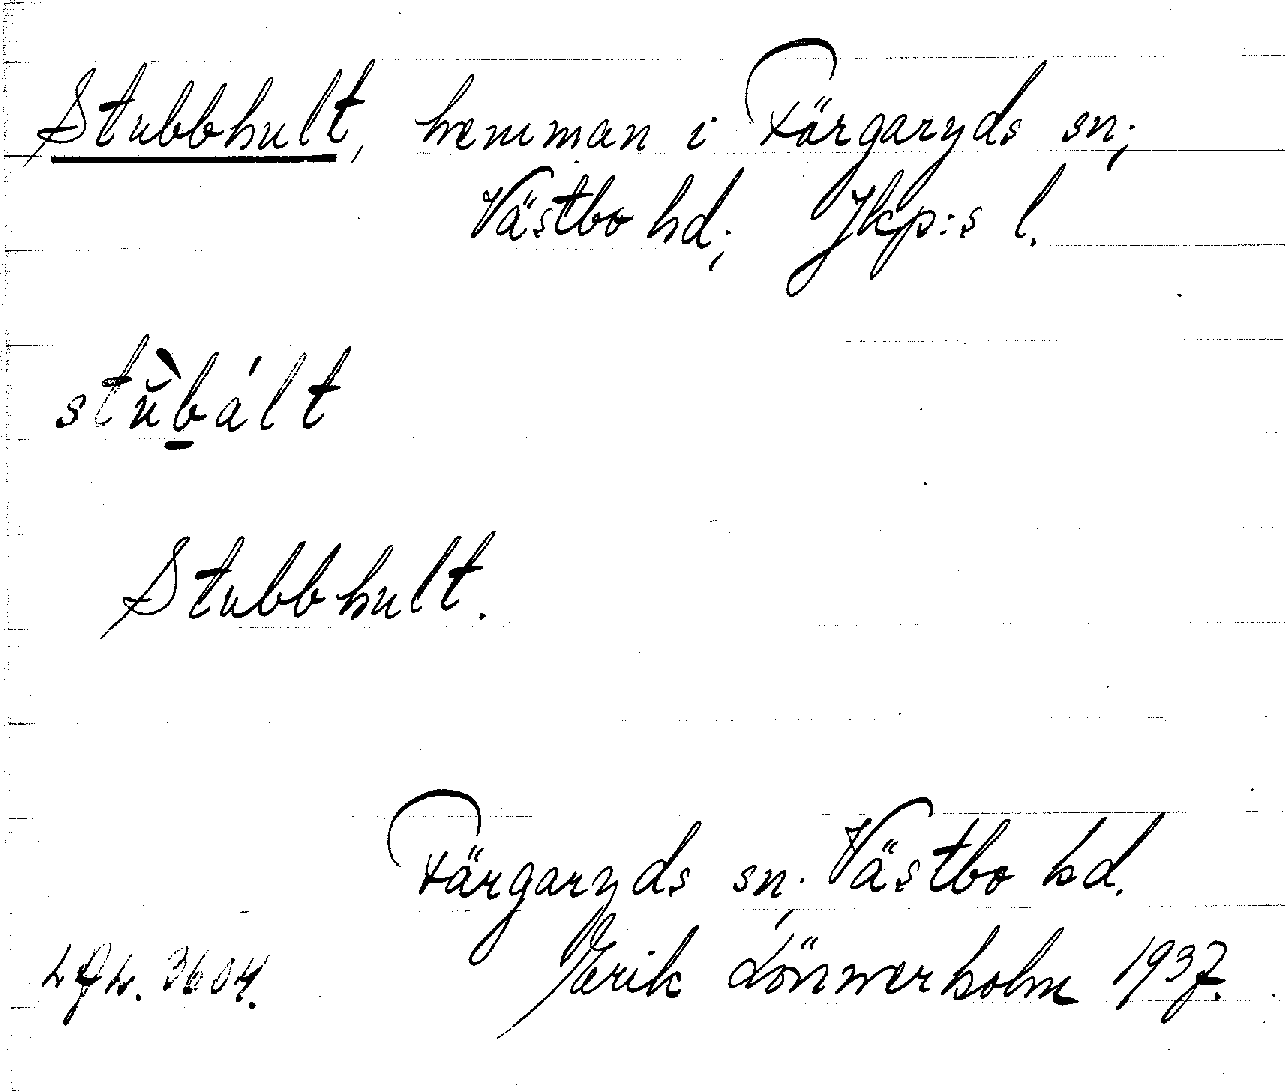 Stubbhult, hemman i Färgaryds sn;
Västbo hd; Jkp:s l.
stŭ̀bált
Stubbhult.
Färgaryds sn; Västbo hd.
Erik Lönnerholm 1937.